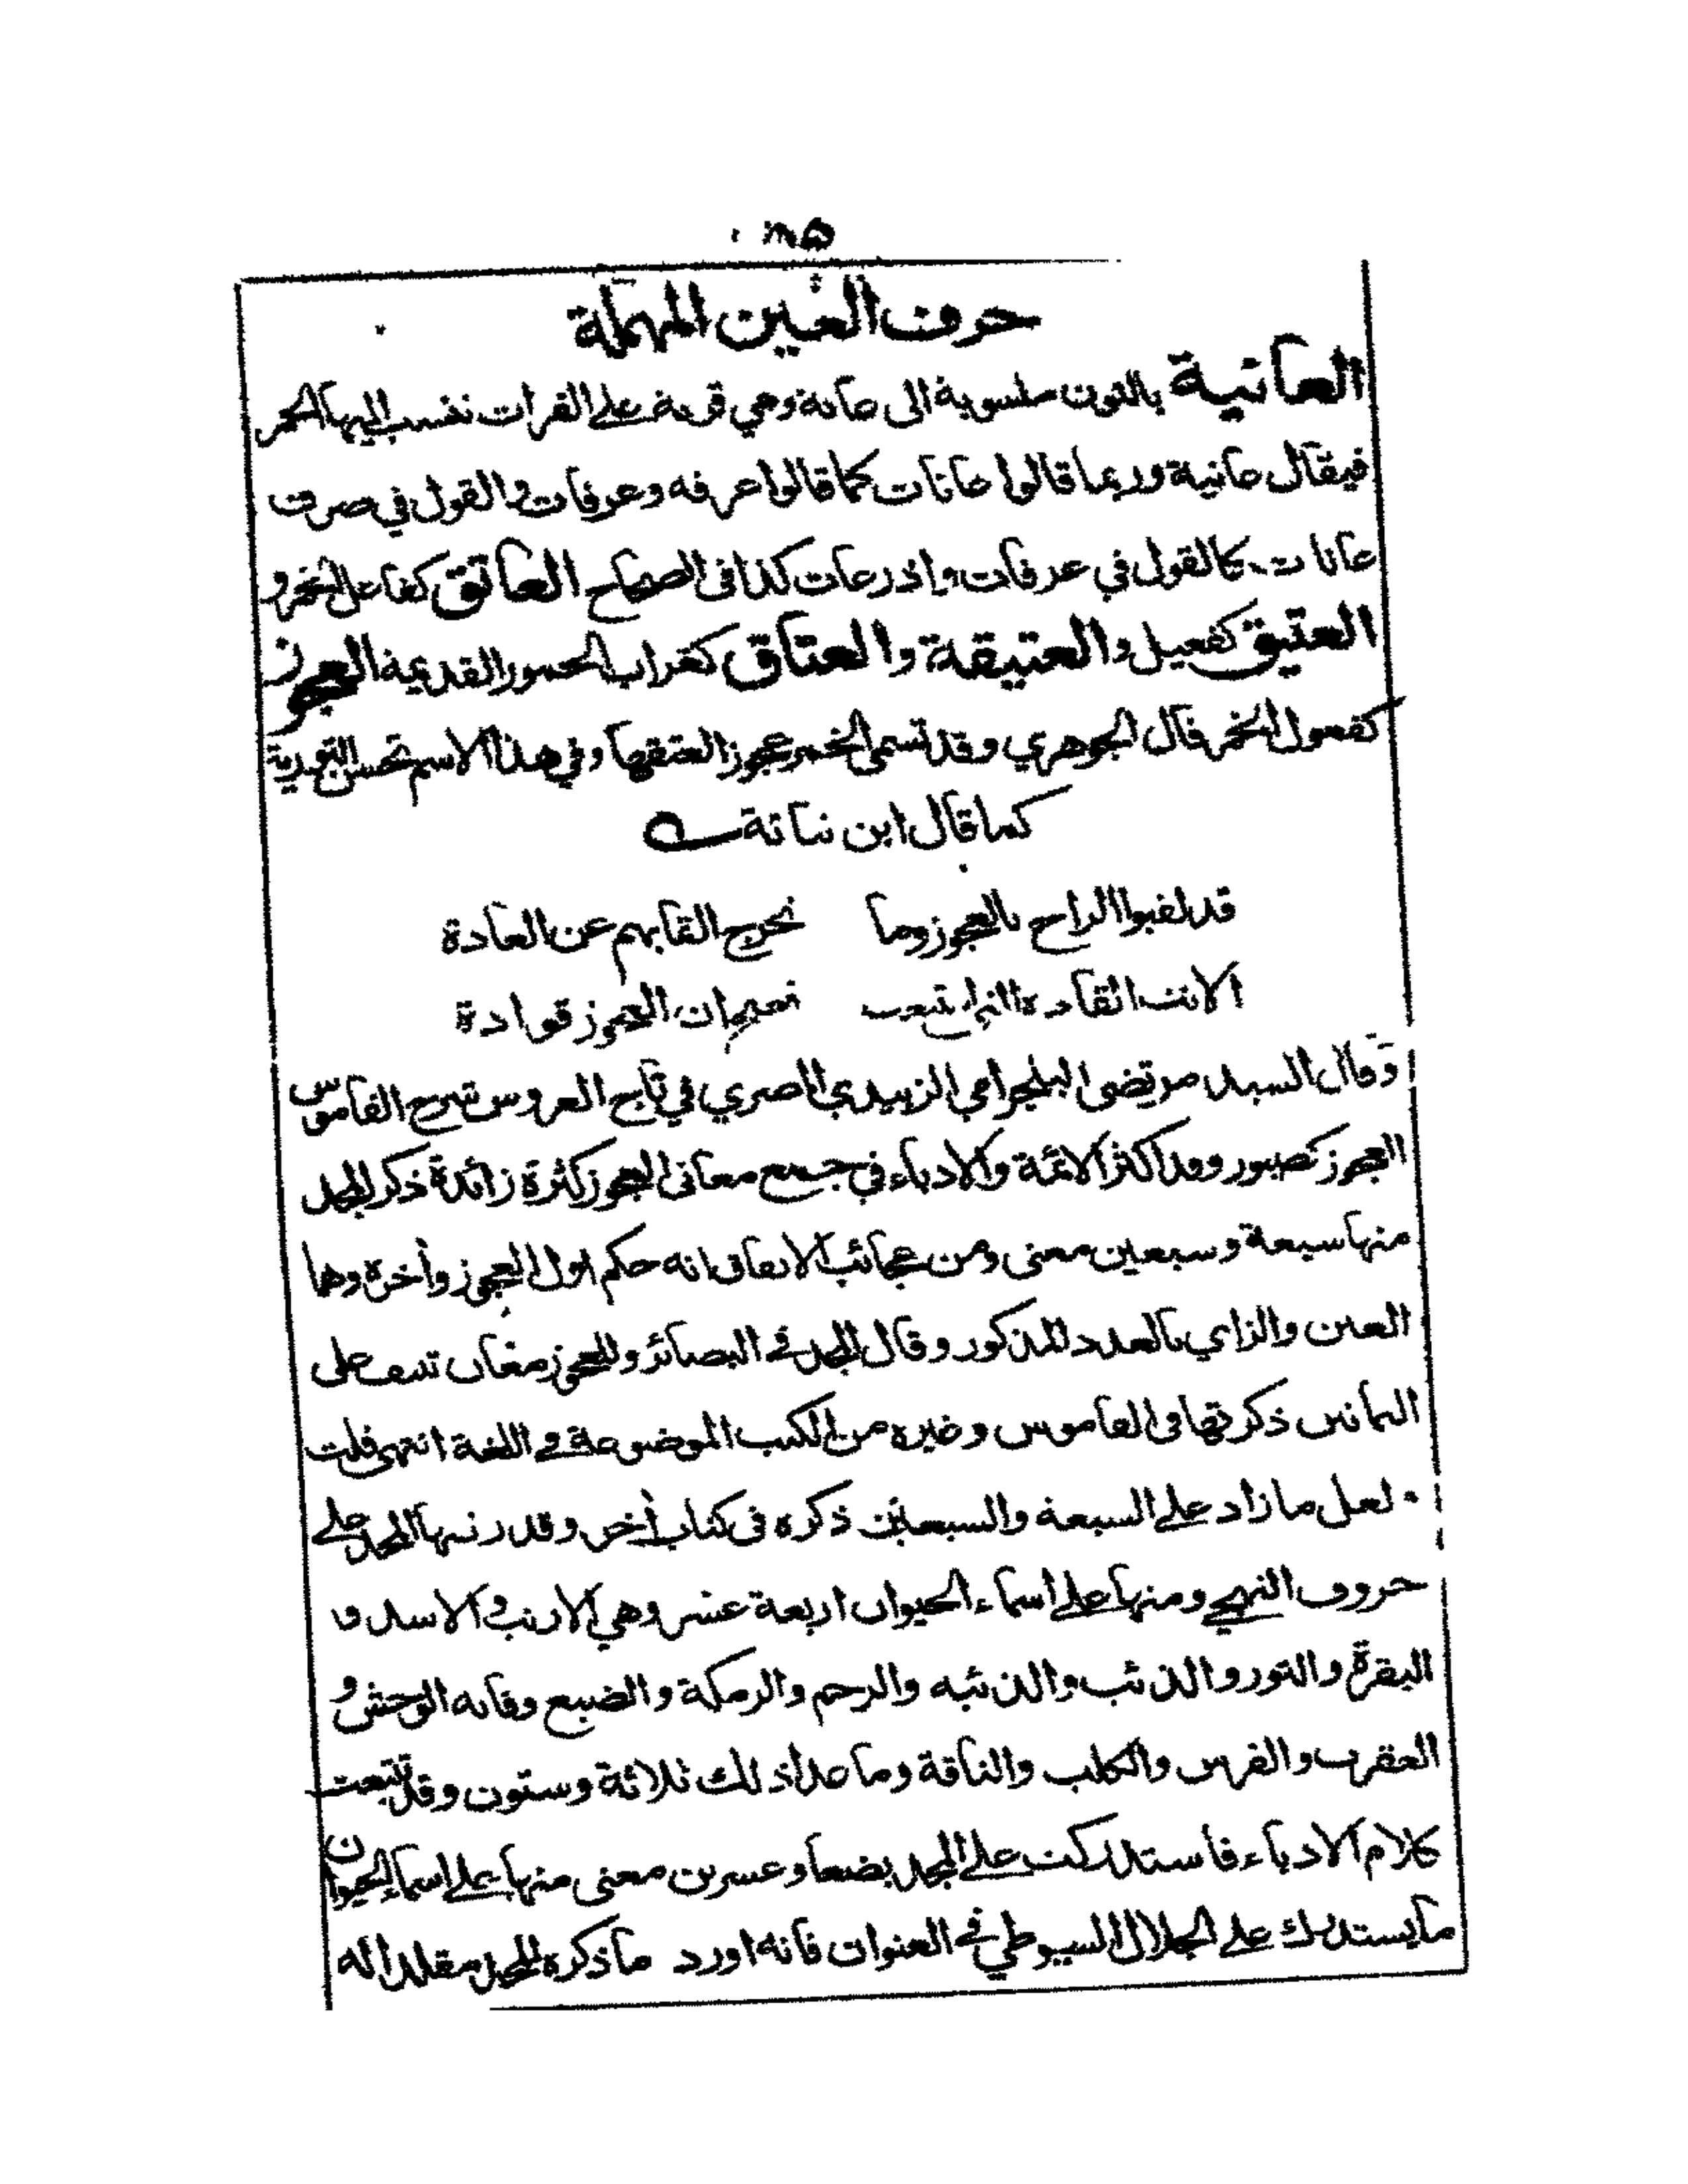 حرف العين المهملة
العانية بالنون منسوبة الى عانة وهي قرية على الفرات تنسب اليها الخمر
فيقال عانية وربما قالوا عانات كما قالوا عرفه وعرفات والقول في صرف
عانات كالقول في عرفات واذرعات كذا فى الصحاح العاتق كفاعل الخمر و
العتيق كفعيل والعتيقة والعتاق كغراب الخمور القديمة العجوز
كفعول الخمر قال الجوهري وقد تسمى الخمر عجوز العتقها وفي هذا الاسم تحسن التورية
كما قال ابن نباتة
قد لقبوا الراح بالعجوز وما تخرج القابهم عن العادة
الانت القادة التى تعب ان العجوز قوادة
وقال السيد مرتضى البلجرامي الزبيدي المصري في تاج العروس شرح القاموس
العجوز كصبور وقد اكثر الائمة والادباء في جمع معانى العجوز كثرة زائدة ذكر المجد
منها سبعة وسبعين معنى ومن عجائب الاتفاق انه حكم اول العجوز وأخره وهما
العين والزاي بالعدد المذكور وقال المجد في البصائر وللعجوز معان تنيف على
الثمانين ذكرتها فى القاموس وغيره من الكتب الموضوعة في اللغة انتهى قلت
لعل ما زاد على السبعة والسبعين ذكره فى كتاب أخر وقد رتبها المجد على
حروف التهجي ومنها على اسماء الحيوان اربعة عشر وهي الارنب والاسد و
البقرة والثور والذئب والذئبه والرخم والرمكة والضبع وعانه الوحش و
العقرب والفرس والكلب والناقة وما عدا ذلك ثلاثة وستون وقد تتبعت
كلام الادباء فاستدركت على المجد بضعا وعشرين معنى منها على اسماء الحيوان
ما يستدرك على الجلال السيوطي في العنوان فانه اورد ما ذكره المجد مقلدا له